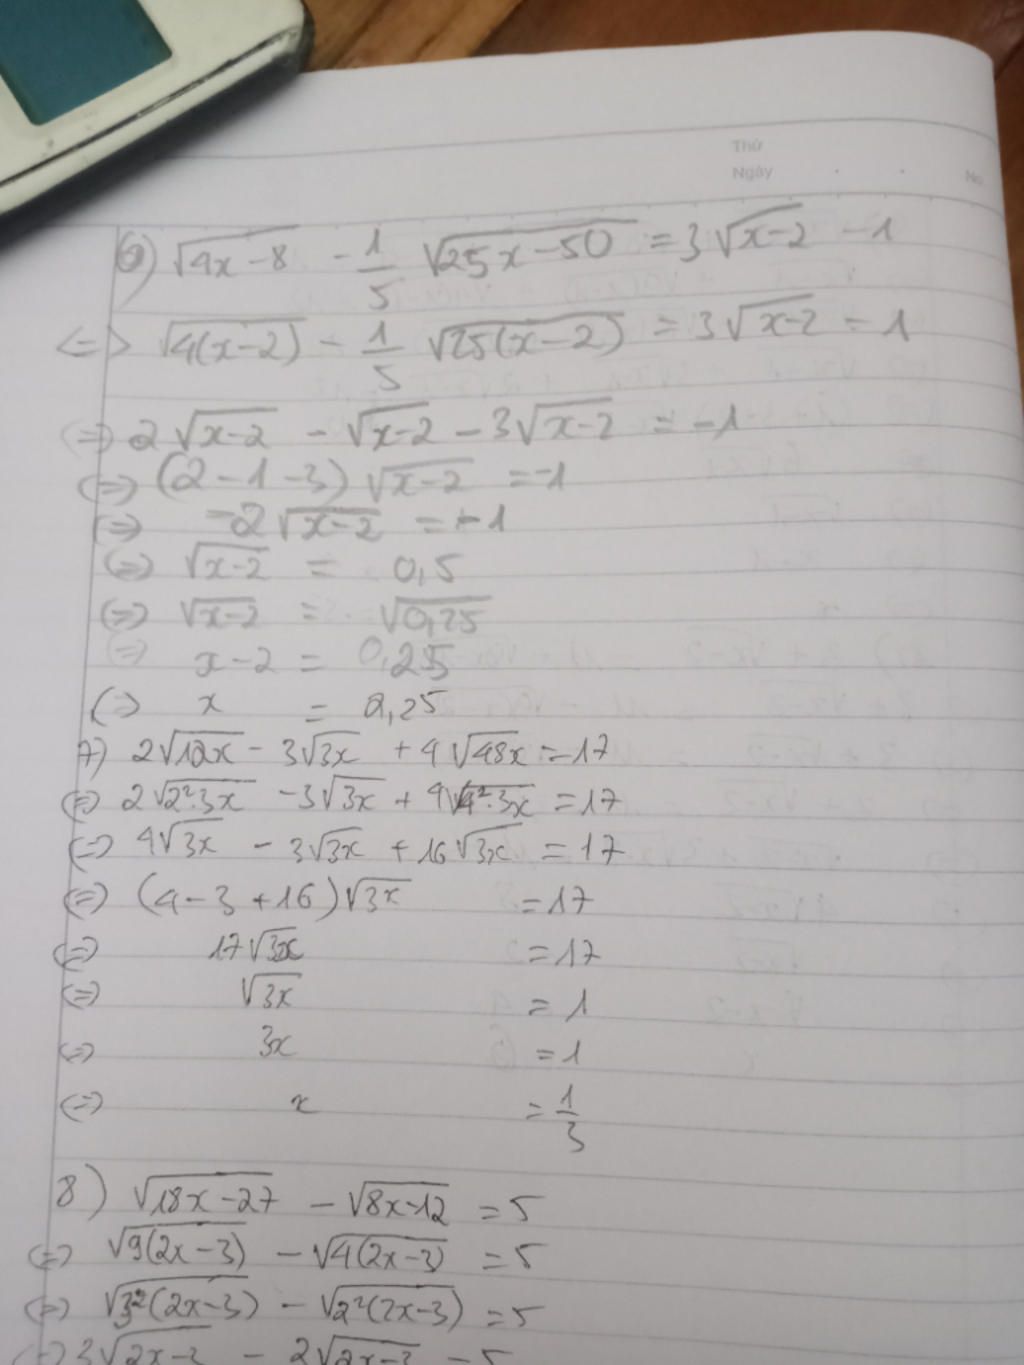 Thứ
Ngày
No
6) √(4x-8) - 1/5 √(25x-50) = 3√(x-2) - 1
<=> √(4(x-2)) - 1/5 √(25(x-2)) = 3√(x-2) - 1
(=) 2√(x-2) - √(x-2) - 3√(x-2) = -1
(=) (2-1-3)√(x-2) = -1
(=) -2√(x-2) = -1
(=) √(x-2) = 0,5
(=) √(x-2) = √(0,25)
(=) x-2 = 0,25
(=) x = 2,25
7) 2√(12x) - 3√(3x) + 4√(48x) = 17
(=) 2√(2².3x) - 3√(3x) + 4√(4².3x) = 17
(=) 4√(3x) - 3√(3x) + 16√(3x) = 17
(=) (4-3+16)√(3x) = 17
(=) 17√(3x) = 17
(=) √(3x) = 1
(=) 3x = 1
(=) x = 1/3
8) √(18x-27) - √(8x-12) = 5
(=) √(9(2x-3)) - √(4(2x-3)) = 5
(=) √(3²(2x-3)) - √(2²(2x-3)) = 5
(=) 3√(2x-3) - 2√(2x-3) = 5